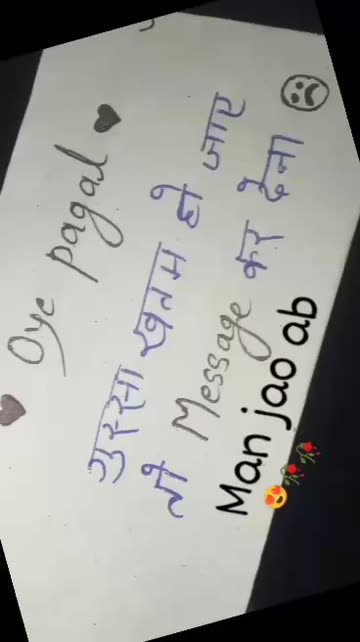 Oye pagal
गुस्सा खतम हो जाए
तो Message कर देना
Man jao ab